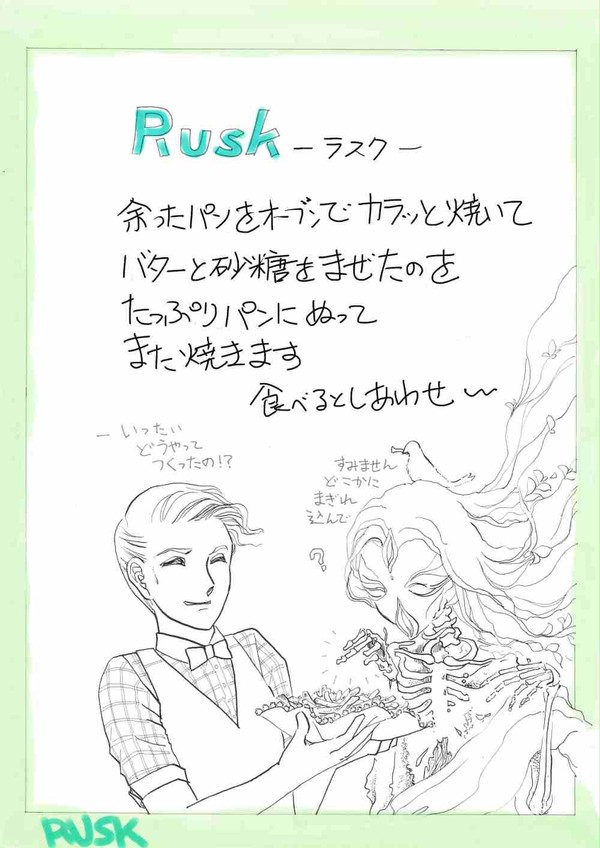 Rusk －ラスク－
余ったパンをオーブンでカラッと焼いて
バターと砂糖をまぜたのを
たっぷりパンにぬって
また焼きます
食べるとしあわせ〜
－いったい
どうやって
つくったの!?
すみません
どこかに
まぎれ
込んで
?
RUSK